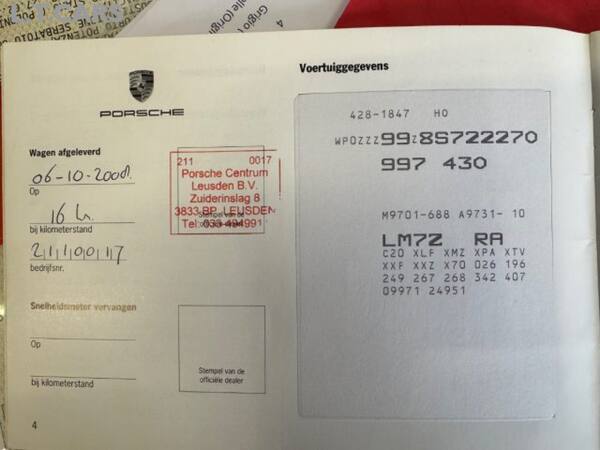 Grigio
4
PORSCHE
Wagen afgeleverd
06-10-2008.
Op
16 h.
bij kilometerstand
2110017
bedrijfsnr.
211 0017
Porsche Centrum
Leusden B.V.
Zuiderinslag 8
3833 BP LEUSDEN
Tel. 033-494991
Stempel van de
officiële dealer
Snelheidsmeter vervangen
Op
bij kilometerstand
Stempel van de
officiële dealer
4
Voertuiggegevens
428-1847 HO
WPOZZZ99Z8S722270
997 430
M9701-688 A9731- 10
LM7Z RA
C20 XLF XMZ XPA XTV
XXF XXZ X70 026 196
249 267 268 342 407
09971 24951